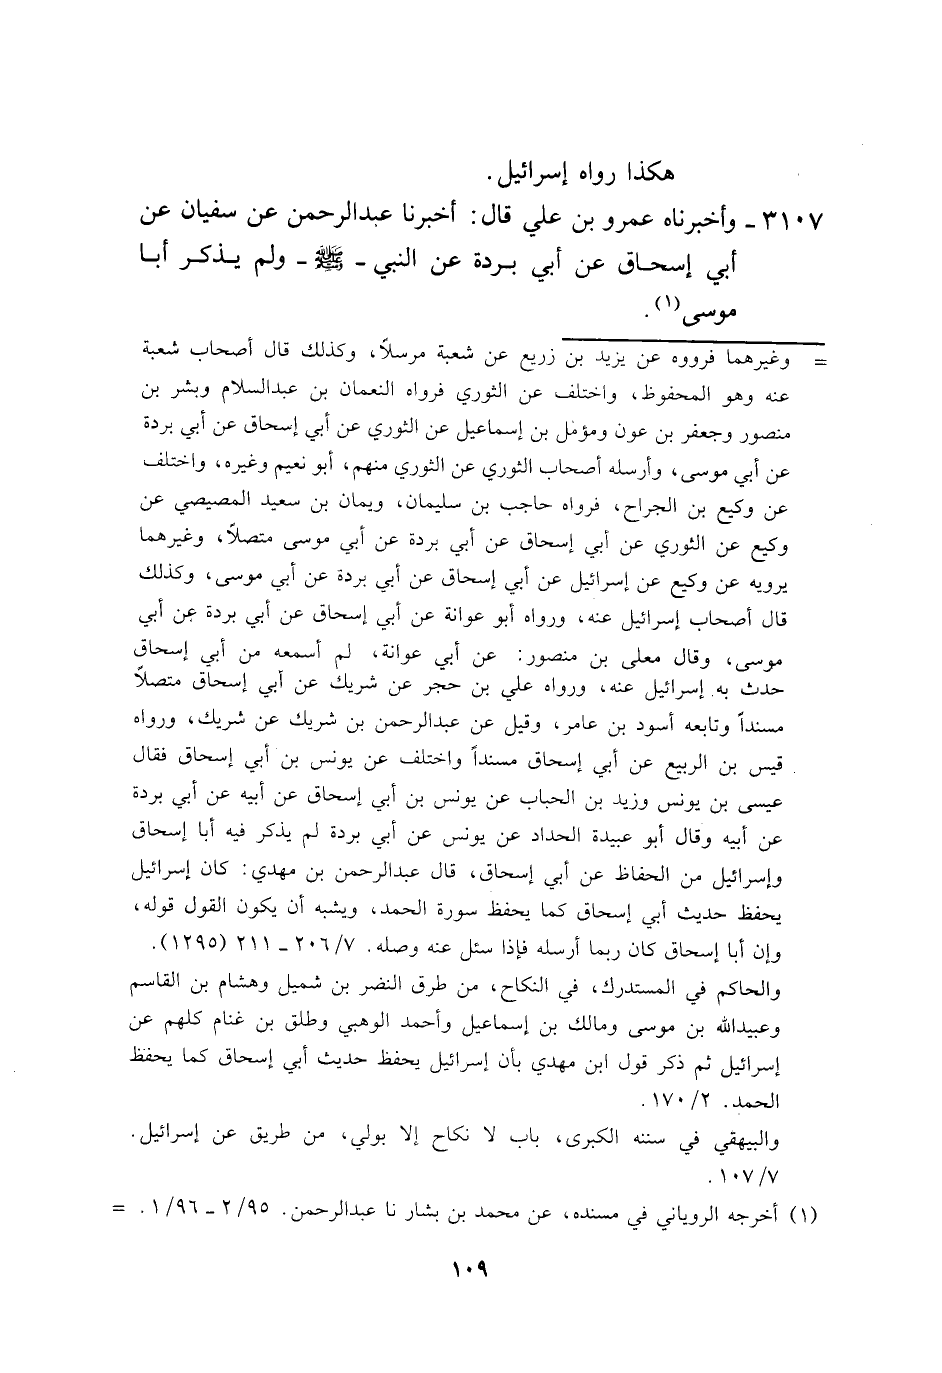 هكذا رواه إسرائيل.
٣١٠٧ ـ وأخبرناه عمرو بن علي قال: أخبرنا عبدالرحمن عن سفيان عن
أبي إسحاق عن أبي بردة عن النبي ـ ﷺ ـ ولم يذكر أبا
موسى(١).
= وغيرهما فرووه عن يزيد بن زريع عن شعبة مرسلاً، وكذلك قال أصحاب شعبة
عنه وهو المحفوظ، واختلف عن الثوري فرواه النعمان بن عبدالسلام وبشر بن
منصور وجعفر بن عون ومؤمل بن إسماعيل عن الثوري عن أبي إسحاق عن أبي بردة
عن أبي موسى، وأرسله أصحاب الثوري عن الثوري منهم، أبو نعيم وغيره، واختلف
عن وكيع بن الجراح، فرواه حاجب بن سليمان، ويمان بن سعيد المصيصي عن
وكيع عن الثوري عن أبي إسحاق عن أبي بردة عن أبي موسى متصلاً، وغيرهما
يرويه عن وكيع عن إسرائيل عن أبي إسحاق عن أبي بردة عن أبي موسى، وكذلك
قال أصحاب إسرائيل عنه، ورواه أبو عوانة عن أبي إسحاق عن أبي بردة عن أبي
موسى، وقال معلى بن منصور: عن أبي عوانة، لم أسمعه من أبي إسحاق
حدث به إسرائيل عنه، ورواه علي بن حجر عن شريك عن أبي إسحاق متصلاً
مسنداً وتابعه أسود بن عامر، وقيل عن عبدالرحمن بن شريك عن شريك، ورواه
قيس بن الربيع عن أبي إسحاق مسنداً واختلف عن يونس بن أبي إسحاق فقال
عيسى بن يونس وزيد بن الحباب عن يونس بن أبي إسحاق عن أبيه عن أبي بردة
عن أبيه وقال أبو عبيدة الحداد عن يونس عن أبي بردة لم يذكر فيه أبا إسحاق
وإسرائيل من الحفاظ عن أبي إسحاق، قال عبدالرحمن بن مهدي: كان إسرائيل
يحفظ حديث أبي إسحاق كما يحفظ سورة الحمد، ويشبه أن يكون القول قوله،
وإن أبا إسحاق كان ربما أرسله فإذا سئل عنه وصله. ٢٠٦/٧ ـ ٢١١ (١٢٩٥).
والحاكم في المستدرك، في النكاح، من طرق النضر بن شميل وهشام بن القاسم
وعبيدالله بن موسى ومالك بن إسماعيل وأحمد الوهبي وطلق بن غنام كلهم عن
إسرائيل ثم ذكر قول ابن مهدي بأن إسرائيل يحفظ حديث أبي إسحاق كما يحفظ
الحمد. ١٧٠/٢.
والبيهقي في سننه الكبرى، باب لا نكاح إلا بولي، من طريق عن إسرائيل.
١٠٧/٧.
(١) أخرجه الروياني في مسنده، عن محمد بن بشار نا عبدالرحمن. ٢/٩٥ ـ ١/٩٦. =
١٠٩